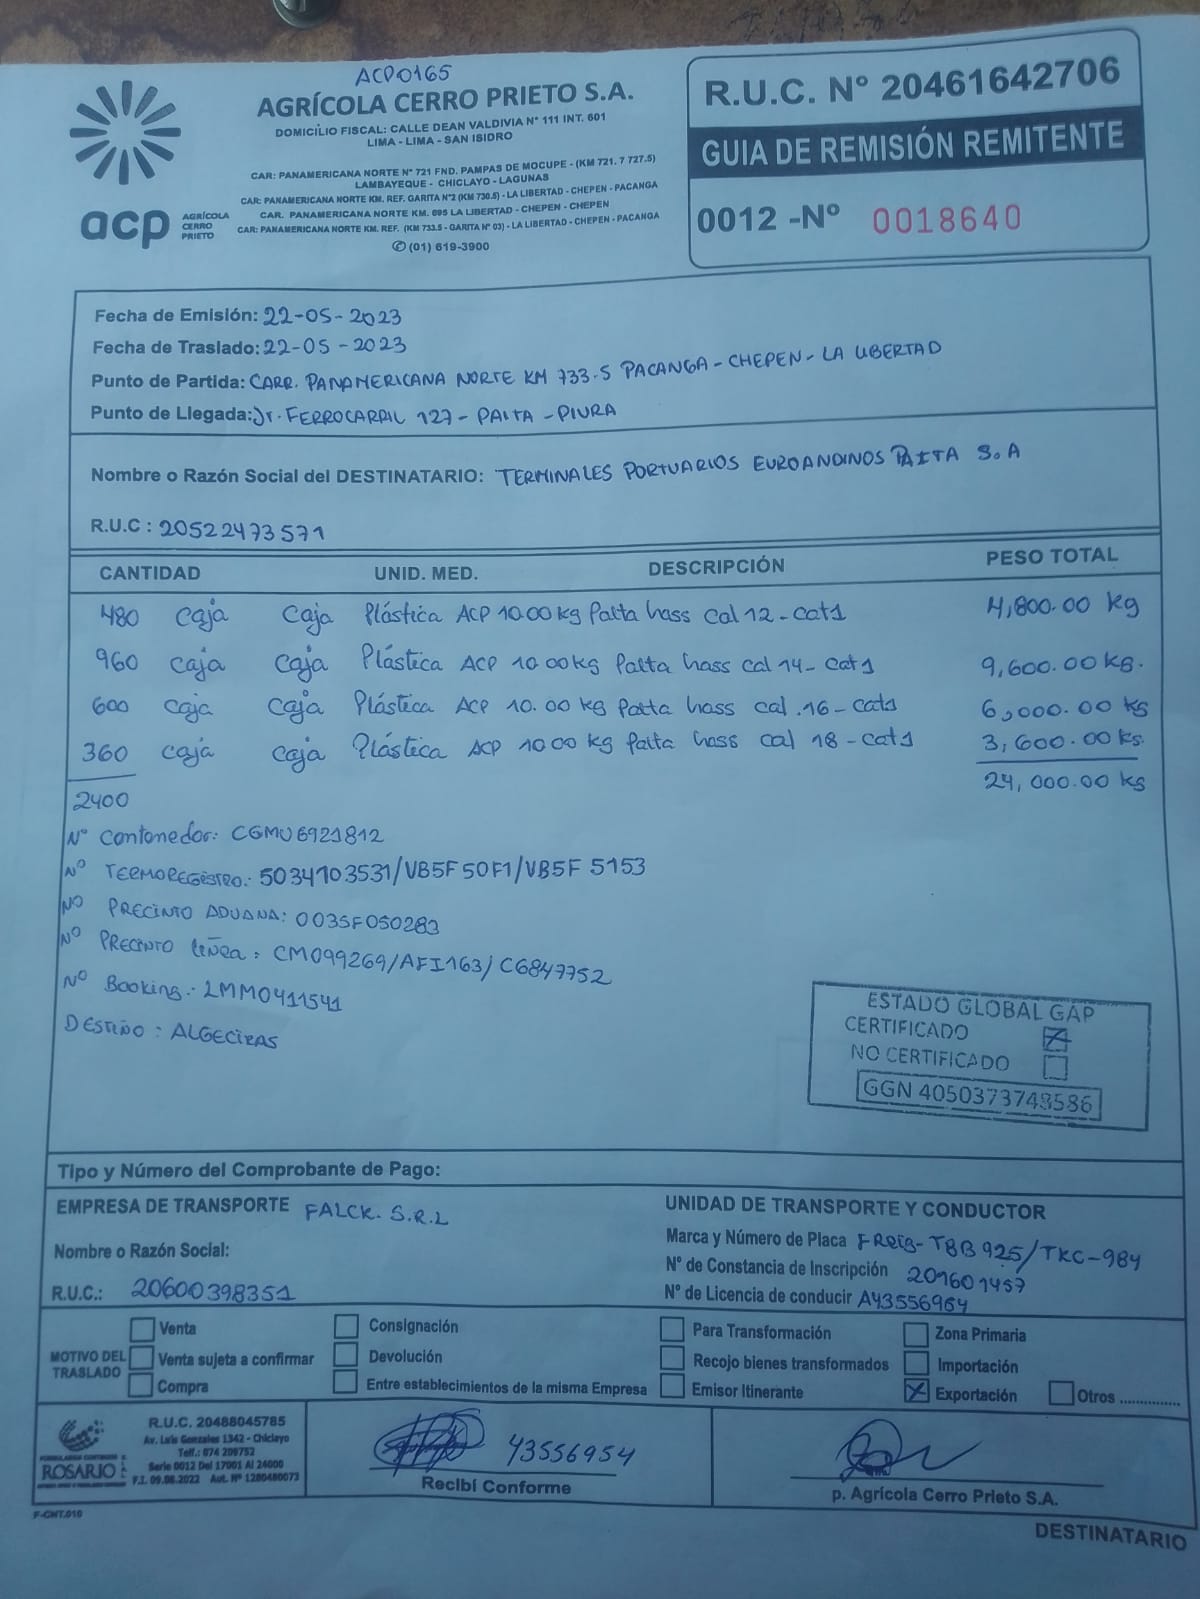 ACP0165
AGRÍCOLA CERRO PRIETO S.A.
DOMICILIO FISCAL: CALLE DEAN VALDIVIA N° 111 INT. 601
LIMA - LIMA - SAN ISIDRO
CAR: PANAMERICANA NORTE N° 721 FND. PAMPAS DE MOCUPE - (KM 721. 7 727.5)
LAMBAYEQUE - CHICLAYO - LAGUNAS
CAR: PANAMERICANA NORTE KM. REF. GARITA N°2 (KM 730.5) - LA LIBERTAD - CHEPEN - PACANGA
CAR. PANAMERICANA NORTE KM. 695 LA LIBERTAD - CHEPEN - CHEPEN
CAR: PANAMERICANA NORTE KM. REF. (KM 733.5 - GARITA N° 03) - LA LIBERTAD - CHEPEN - PACANGA
(01) 619-3900
acp AGRÍCOLA CERRO PRIETO
R.U.C. N° 20461642706
GUIA DE REMISIÓN REMITENTE
0012 -N° 0018640
Fecha de Emisión: 22-05-2023
Fecha de Traslado: 22-05-2023
Punto de Partida: CARR. PANAMERICANA NORTE KM 733.5 PACANGA - CHEPEN - LA LIBERTAD
Punto de Llegada: Jr. FERROCARRIL 127 - PAITA - PIURA
Nombre o Razón Social del DESTINATARIO: TERMINALES PORTUARIOS EUROANDINOS PAITA S.A
R.U.C : 20522473571
CANTIDAD UNID. MED. DESCRIPCIÓN PESO TOTAL
480 caja Caja Plástica ACP 10.00 kg Palta hass cal 12 - cat1 4,800.00 kg
960 caja Caja Plástica ACP 10.00 kg Palta hass cal 14 - cat1 9,600.00 kg.
600 caja Caja Plástica ACP 10.00 kg Palta hass cal. 16 - cat1 6,000.00 kg
360 caja Caja Plástica ACP 10.00 kg Palta hass cal 18 - cat1 3,600.00 kg.
2400 24,000.00 kg
N° Contenedor: CGMU6921812
N° TERMOREGISTRO.: 5034103531/VB5F50F1/VB5F 5153
N° PRECINTO ADUANA: 003SF050283
N° PRECINTO LÍNEA: CM099269/AFI163/C6847752
N° Booking.: LMM0411541
DESTINO : ALGECIRAS
ESTADO GLOBAL GAP
CERTIFICADO
NO CERTIFICADO
GGN 4050373748586
Tipo y Número del Comprobante de Pago:
EMPRESA DE TRANSPORTE FALCK. S.R.L
Nombre o Razón Social:
R.U.C.: 20600398351
UNIDAD DE TRANSPORTE Y CONDUCTOR
Marca y Número de Placa FREIG- TBB925/TKC-984
N° de Constancia de Inscripción 201601457
N° de Licencia de conducir A43556954
MOTIVO DEL TRASLADO
Venta
Venta sujeta a confirmar
Compra
Consignación
Devolución
Entre establecimientos de la misma Empresa
Para Transformación
Recojo bienes transformados
Emisor Itinerante
Zona Primaria
Importación
Exportación
Otros ..............
ROSARIO
R.U.C. 20488045785
Av. Luis Gonzales 1342 - Chiclayo
Telf.: 074 209752
Serie 0012 Del 17001 Al 24000
F.I. 09.08.2022 Aut. N° 1280480073
43556954
Recibí Conforme
p. Agrícola Cerro Prieto S.A.
F-CNT.010
DESTINATARIO